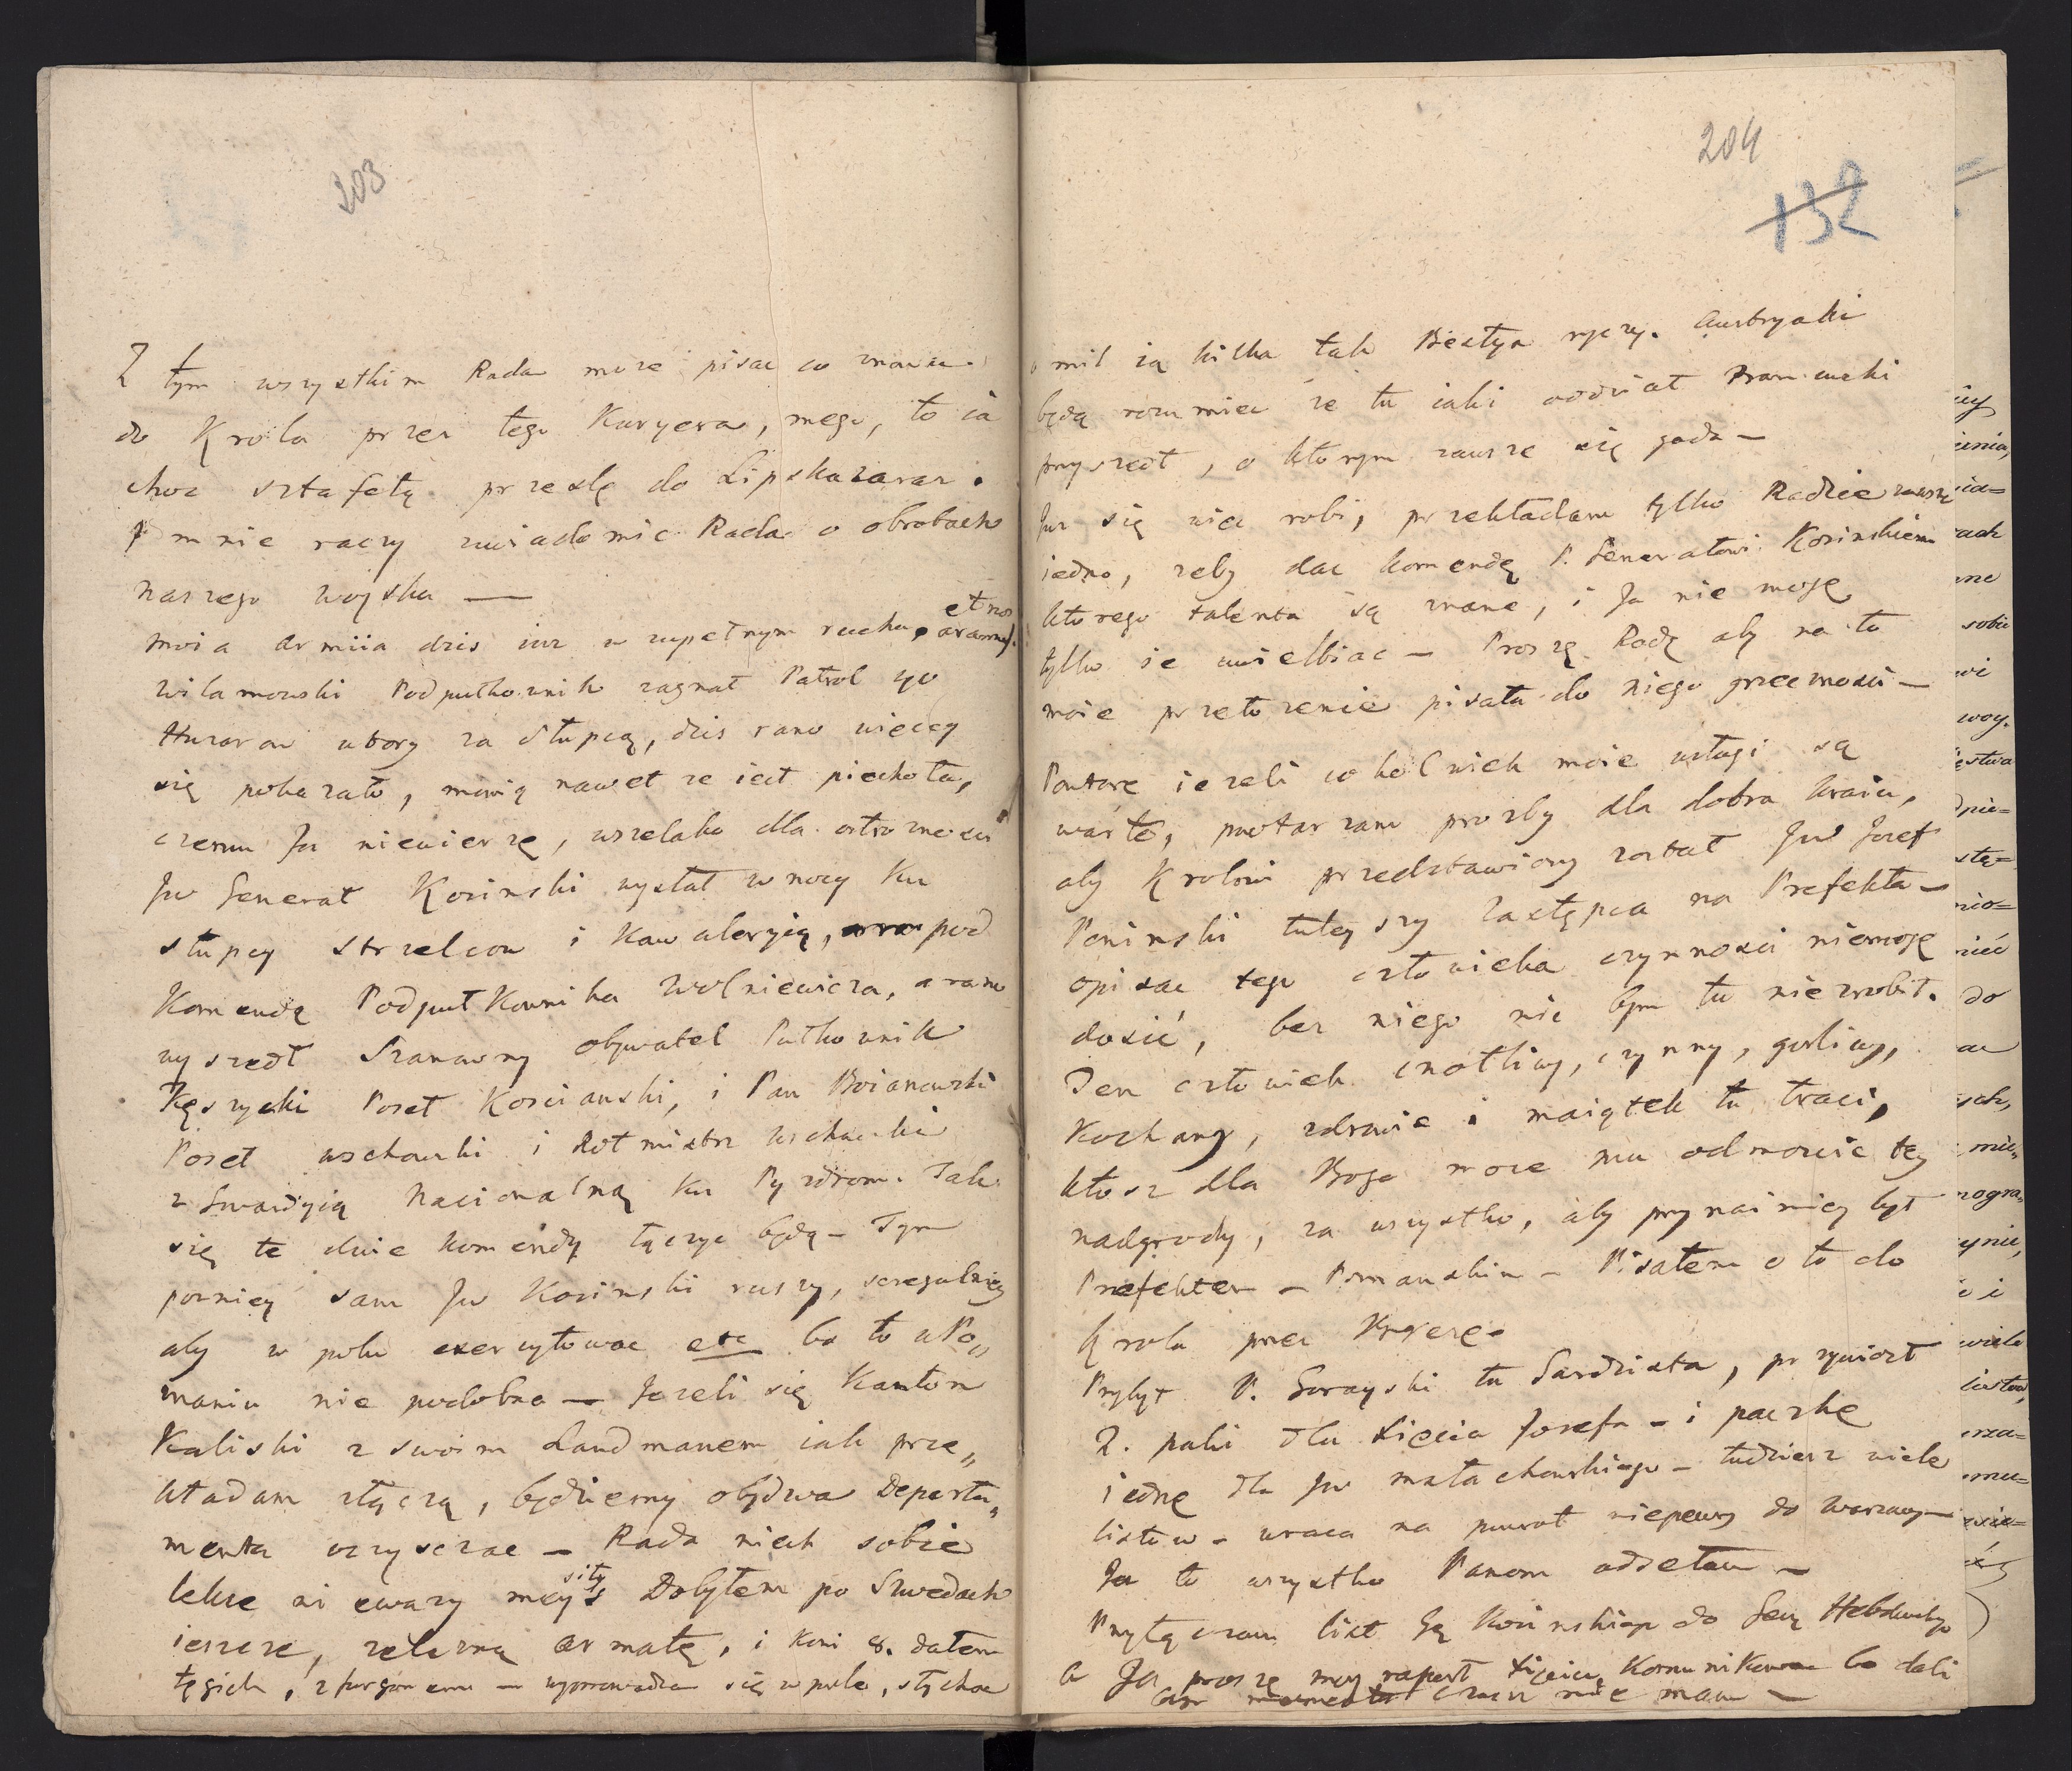 203
Z tym wszystkim Rada może pisac co
do Krola przez tego Kuryera, mego, to ia
choc sztafetą przeslę do Lipska zaraz.
mnie raczy uwiadomic Rada o obrotach
naszego woyska —
moia armiia dzis iuz w zupełnym ruchu,
Wilamowski Podpułkownik zagnał Patrol 40
Huzarow wtory za Słupcą, dzis rano więcey
się pokazało, mowią nawet ze iest piechota,
czemu Ja niewierzę, wszelako dla ostroznosci
JW Generał Kosinski wysłał w nocy ku
Słupcy strzelcow i Kawaleryią, pod
Komendą Podpułkownika Wolniewicza, a rano
wyszedł Szanowny obywatel Pułkownik
Kęszycki Poseł Kościanski, i Pan Boianowski
Poseł wschowski i Rotmistrz wschowski
z Gwardyią Nacionalną ku Pyzdrom. Tak
się te dwie komendy łączyc będą – Tym
pozniey sam JW Kosinski ruszy, szczegulniey
aby w polu exercytowac etc bo to w Po„
znaniu nie podobna — Jezeli się Kanton
Kaliski z swoim Landmanem iak prze„
kładam złączą, będziemy obydwa Departa„
menta oczyszczac – Rada niech sobie
lekce ni ewazy mey siły Dobyłem po Szwedach
ieszcze, zelazną armatę, i koni 8. dałem
tęgich, z furgonem — wyprowadza się w pole, słychac
204
132
mil ią kilka tak Bestya ryczy. Austryaki
będą rozumiec ze tu iaki oddział Francuzki
przyszedł, o ktorym zawsze się gada —
Juz się wiec robi, przekładam tylko Radzie zawsze
iedno, zeby dac komendę P. Generałowi Kosinskiemu
ktorego talenta są znane, i Ja nie mogę
tylko ie uwielbiac — Proszę Radę aby na to
moie przełozenie pisała do niego grzecznosci —
Powtorę iezeli cokolwiek moie usługi są
warte, powtarzam prozby dla dobra kraiu,
aby Krolowi przedstawiony został JW Jozef
Poninski tuteyszy Zastępca na Prefekta —
opisac tego człowieka czynnosci niemogę
dosić, bez niego nic bym tu niezrobił.
Ten człowiek cnotliwy, czynny, gorliwy,
Kochany, zdrowie i maiątek tu traci,
ktosz dla Boga moze mu odmowic tey
nadgrody, za wszystko, aby przynaimniey był
Prefektem — Poznanskim — Pisałem o to do
Krola przez Kuryera.
Przybył P. Gorayski tu Gardzista, przywiozł
2. paki dla Xięcia Jozefa – i paczkę
iednę dla JW Małachowskiego – tudziesz wiele
listow – wraca na powrot niepewny do Warszawy —
Ja to wszystko Panom odsełam —
Przyłączam list Kosinskiego do
Ja proszę moy raport Xięciu Komunikowac bo dali
czasu nie mam —